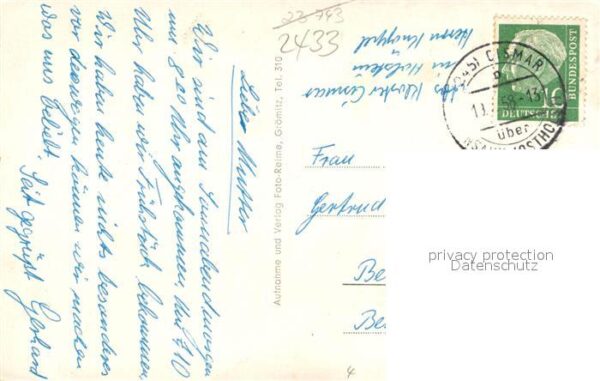 22 743
2433
Liebe Mutter
Wir sind am Sonnabendmorgen
um 8 20 Uhr angekommen. Um 7 10
Uhr haben wir Frühstück bekommen.
Wir haben heute nichts besonderes
vor deswegen können wir machen
was uns beliebt. Seit gegrüßt Gerhard
Aufnahme und Verlag Foto-Reime, Grömitz, Tel. 310
Kloster Cismar
in Holstein
Herrn Knoppel
(24b) CISMAR
über
10
DEUTSCHE
BUNDESPOST
Frau
Gertrud
Be
Be
4
privacy protection
Datenschutz